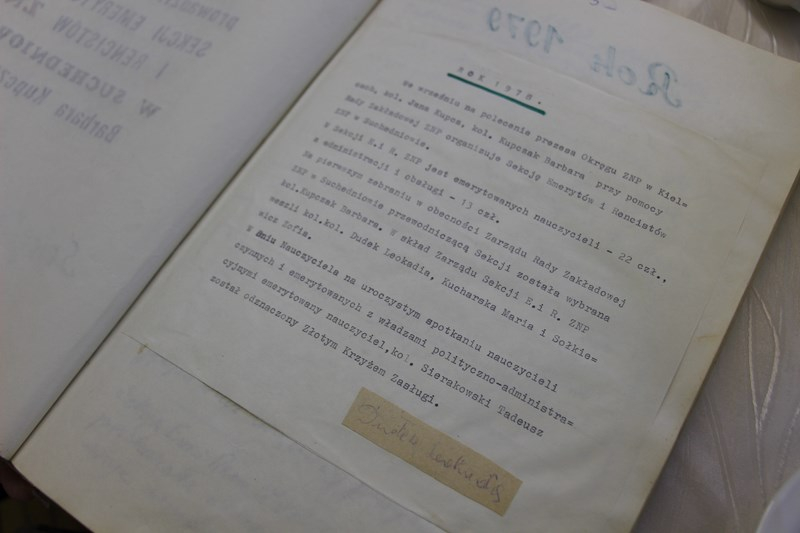 prowadz
SEKCJI EMERYT
I RENCISTÓW Z.
W SUCHEDNIOW
Barbara Kupcz
Rok 1979
ROK 1978.
We wrześniu na polecenie prezesa Okręgu ZNP w Kiel=
cach, kol. Jana Kupca, kol. Kupczak Barbara przy pomocy
Rady Zakładowej ZNP organizuje Sekcję Emerytów i Rencistów
ZNP w Suchedniowie.
W Sekcji E.i R. ZNP jest emerytowanych nauczycieli - 22 czł.,
z administracji i obsługi - 13 czł.
Na pierwszym zebraniu w obecności Zarządu Rady Zakładowej
ZNP w Suchedniowie przewodniczącą Sekcji została wybrana
kol.Kupczak Barbara. W skład Zarządu Sekcji E.i R. ZNP
weszli kol.kol. Dudek Leokadia, Kucharska Maria i Sołkie=
wicz Zofia.
W dniu Nauczyciela na uroczystym spotkaniu nauczycieli
czynnych i emerytowanych z władzami polityczno-administra=
cyjnymi emerytowany nauczyciel,kol. Sierakowski Tadeusz
został odznaczony Złotym Krzyżem Zasługi.
Dudek Leokadia